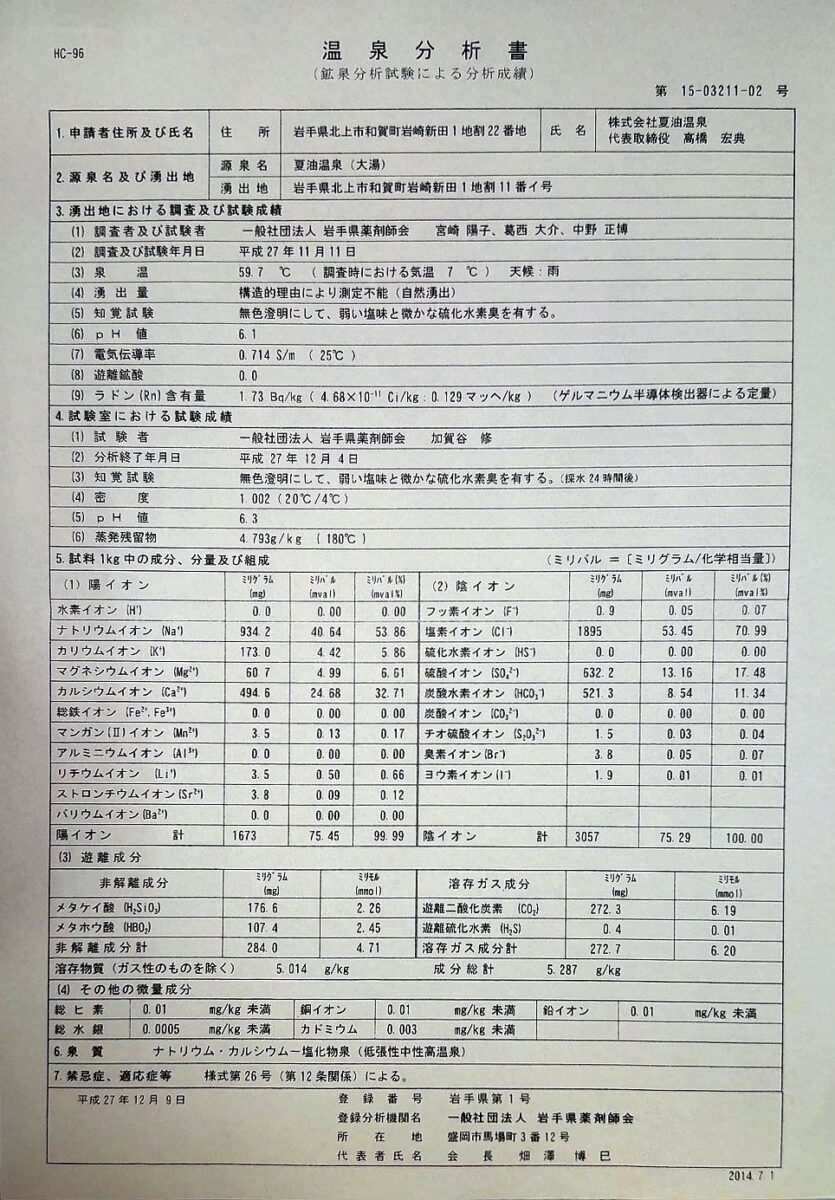 HC-96
温泉分析書
(鉱泉分析試験による分析成績)
第 15-03211-02 号
1.申請者住所及び氏名 住所 岩手県北上市和賀町岩崎新田1地割22番地 氏名 株式会社夏油温泉
代表取締役 髙橋 宏典
2.源泉名及び湧出地 源泉名 夏油温泉(大湯)
湧出地 岩手県北上市和賀町岩崎新田1地割11番イ号
3.湧出地における調査及び試験成績
(1) 調査者及び試験者 一般社団法人 岩手県薬剤師会 宮崎 陽子、葛西 大介、中野 正博
(2) 調査及び試験年月日 平成27年11月11日
(3) 泉温 59.7 ℃ (調査時における気温 7 ℃) 天候:雨
(4) 湧出量 構造的理由により測定不能(自然湧出)
(5) 知覚試験 無色澄明にして、弱い塩味と微かな硫化水素臭を有する。
(6) pH値 6.1
(7) 電気伝導率 0.714 S/m (25℃)
(8) 遊離鉱酸 0.0
(9) ラドン(Rn)含有量 1.73 Bq/kg ( 4.68×10⁻¹¹ Ci/kg : 0.129マッヘ/kg ) (ゲルマニウム半導体検出器による定量)
4.試験室における試験成績
(1) 試験者 一般社団法人 岩手県薬剤師会 加賀谷 修
(2) 分析終了年月日 平成27年12月4日
(3) 知覚試験 無色澄明にして、弱い塩味と微かな硫化水素臭を有する。(採水24時間後)
(4) 密度 1.002 (20℃/4℃)
(5) pH値 6.3
(6) 蒸発残留物 4.793g/kg (180℃)
5.試料1kg中の成分、分量及び組成 (ミリバル = [ミリグラム/化学相当量])
(1) 陽イオン ミリグラム(mg) ミリバル(mval) ミリバル(%)(mval%) (2) 陰イオン ミリグラム(mg) ミリバル(mval) ミリバル(%)(mval%)
水素イオン (H⁺) 0.0 0.00 0.00 フッ素イオン (F⁻) 0.9 0.05 0.07
ナトリウムイオン (Na⁺) 934.2 40.64 53.86 塩素イオン (Cl⁻) 1895 53.45 70.99
カリウムイオン (K⁺) 173.0 4.42 5.86 硫化水素イオン (HS⁻) 0.0 0.00 0.00
マグネシウムイオン (Mg²⁺) 60.7 4.99 6.61 硫酸イオン (SO₄²⁻) 632.2 13.16 17.48
カルシウムイオン (Ca²⁺) 494.6 24.68 32.71 炭酸水素イオン (HCO₃⁻) 521.3 8.54 11.34
総鉄イオン (Fe²⁺,Fe³⁺) 0.0 0.00 0.00 炭酸イオン (CO₃²⁻) 0.0 0.00 0.00
マンガン(Ⅱ)イオン (Mn²⁺) 3.5 0.13 0.17 チオ硫酸イオン (S₂O₃²⁻) 1.5 0.03 0.04
アルミニウムイオン (Al³⁺) 0.0 0.00 0.00 臭素イオン(Br⁻) 3.8 0.05 0.07
リチウムイオン (Li⁺) 3.5 0.50 0.66 ヨウ素イオン(I⁻) 1.9 0.01 0.01
ストロンチウムイオン(Sr²⁺) 3.8 0.09 0.12
バリウムイオン(Ba²⁺) 0.0 0.00 0.00
陽イオン 計 1673 75.45 99.99 陰イオン 計 3057 75.29 100.00
(3) 遊離成分
非解離成分 ミリグラム(mg) ミリモル(mmol) 溶存ガス成分 ミリグラム(mg) ミリモル(mmol)
メタケイ酸 (H₂SiO₃) 176.6 2.26 遊離二酸化炭素 (CO₂) 272.3 6.19
メタホウ酸 (HBO₂) 107.4 2.45 遊離硫化水素 (H₂S) 0.4 0.01
非解離成分計 284.0 4.71 溶存ガス成分計 272.7 6.20
溶存物質(ガス性のものを除く) 5.014 g/kg 成分総計 5.287 g/kg
(4) その他の微量成分
総ヒ素 0.01 mg/kg 未満 銅イオン 0.01 mg/kg 未満 鉛イオン 0.01 mg/kg 未満
総水銀 0.0005 mg/kg 未満 カドミウム 0.003 mg/kg 未満
6.泉質 ナトリウム・カルシウムー塩化物泉(低張性中性高温泉)
7.禁忌症、適応症等 様式第26号(第12条関係)による。
平成27年12月9日 登録番号 岩手県第1号
登録分析機関名 一般社団法人 岩手県薬剤師会
所在地 盛岡市馬場町3番12号
代表者氏名 会長 畑澤 博巳
2014.7.1